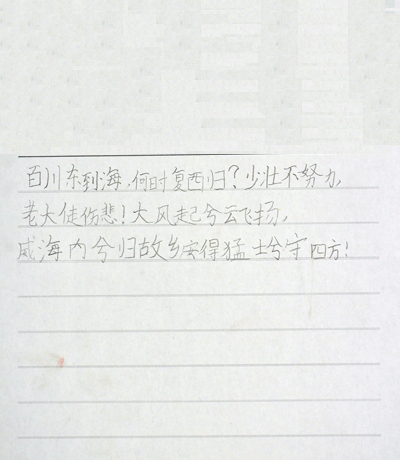 百川东到海,何时复西归?少壮不努力,
老大徒伤悲!大风起兮云飞扬,
威海内兮归故乡安得猛士兮守四方!